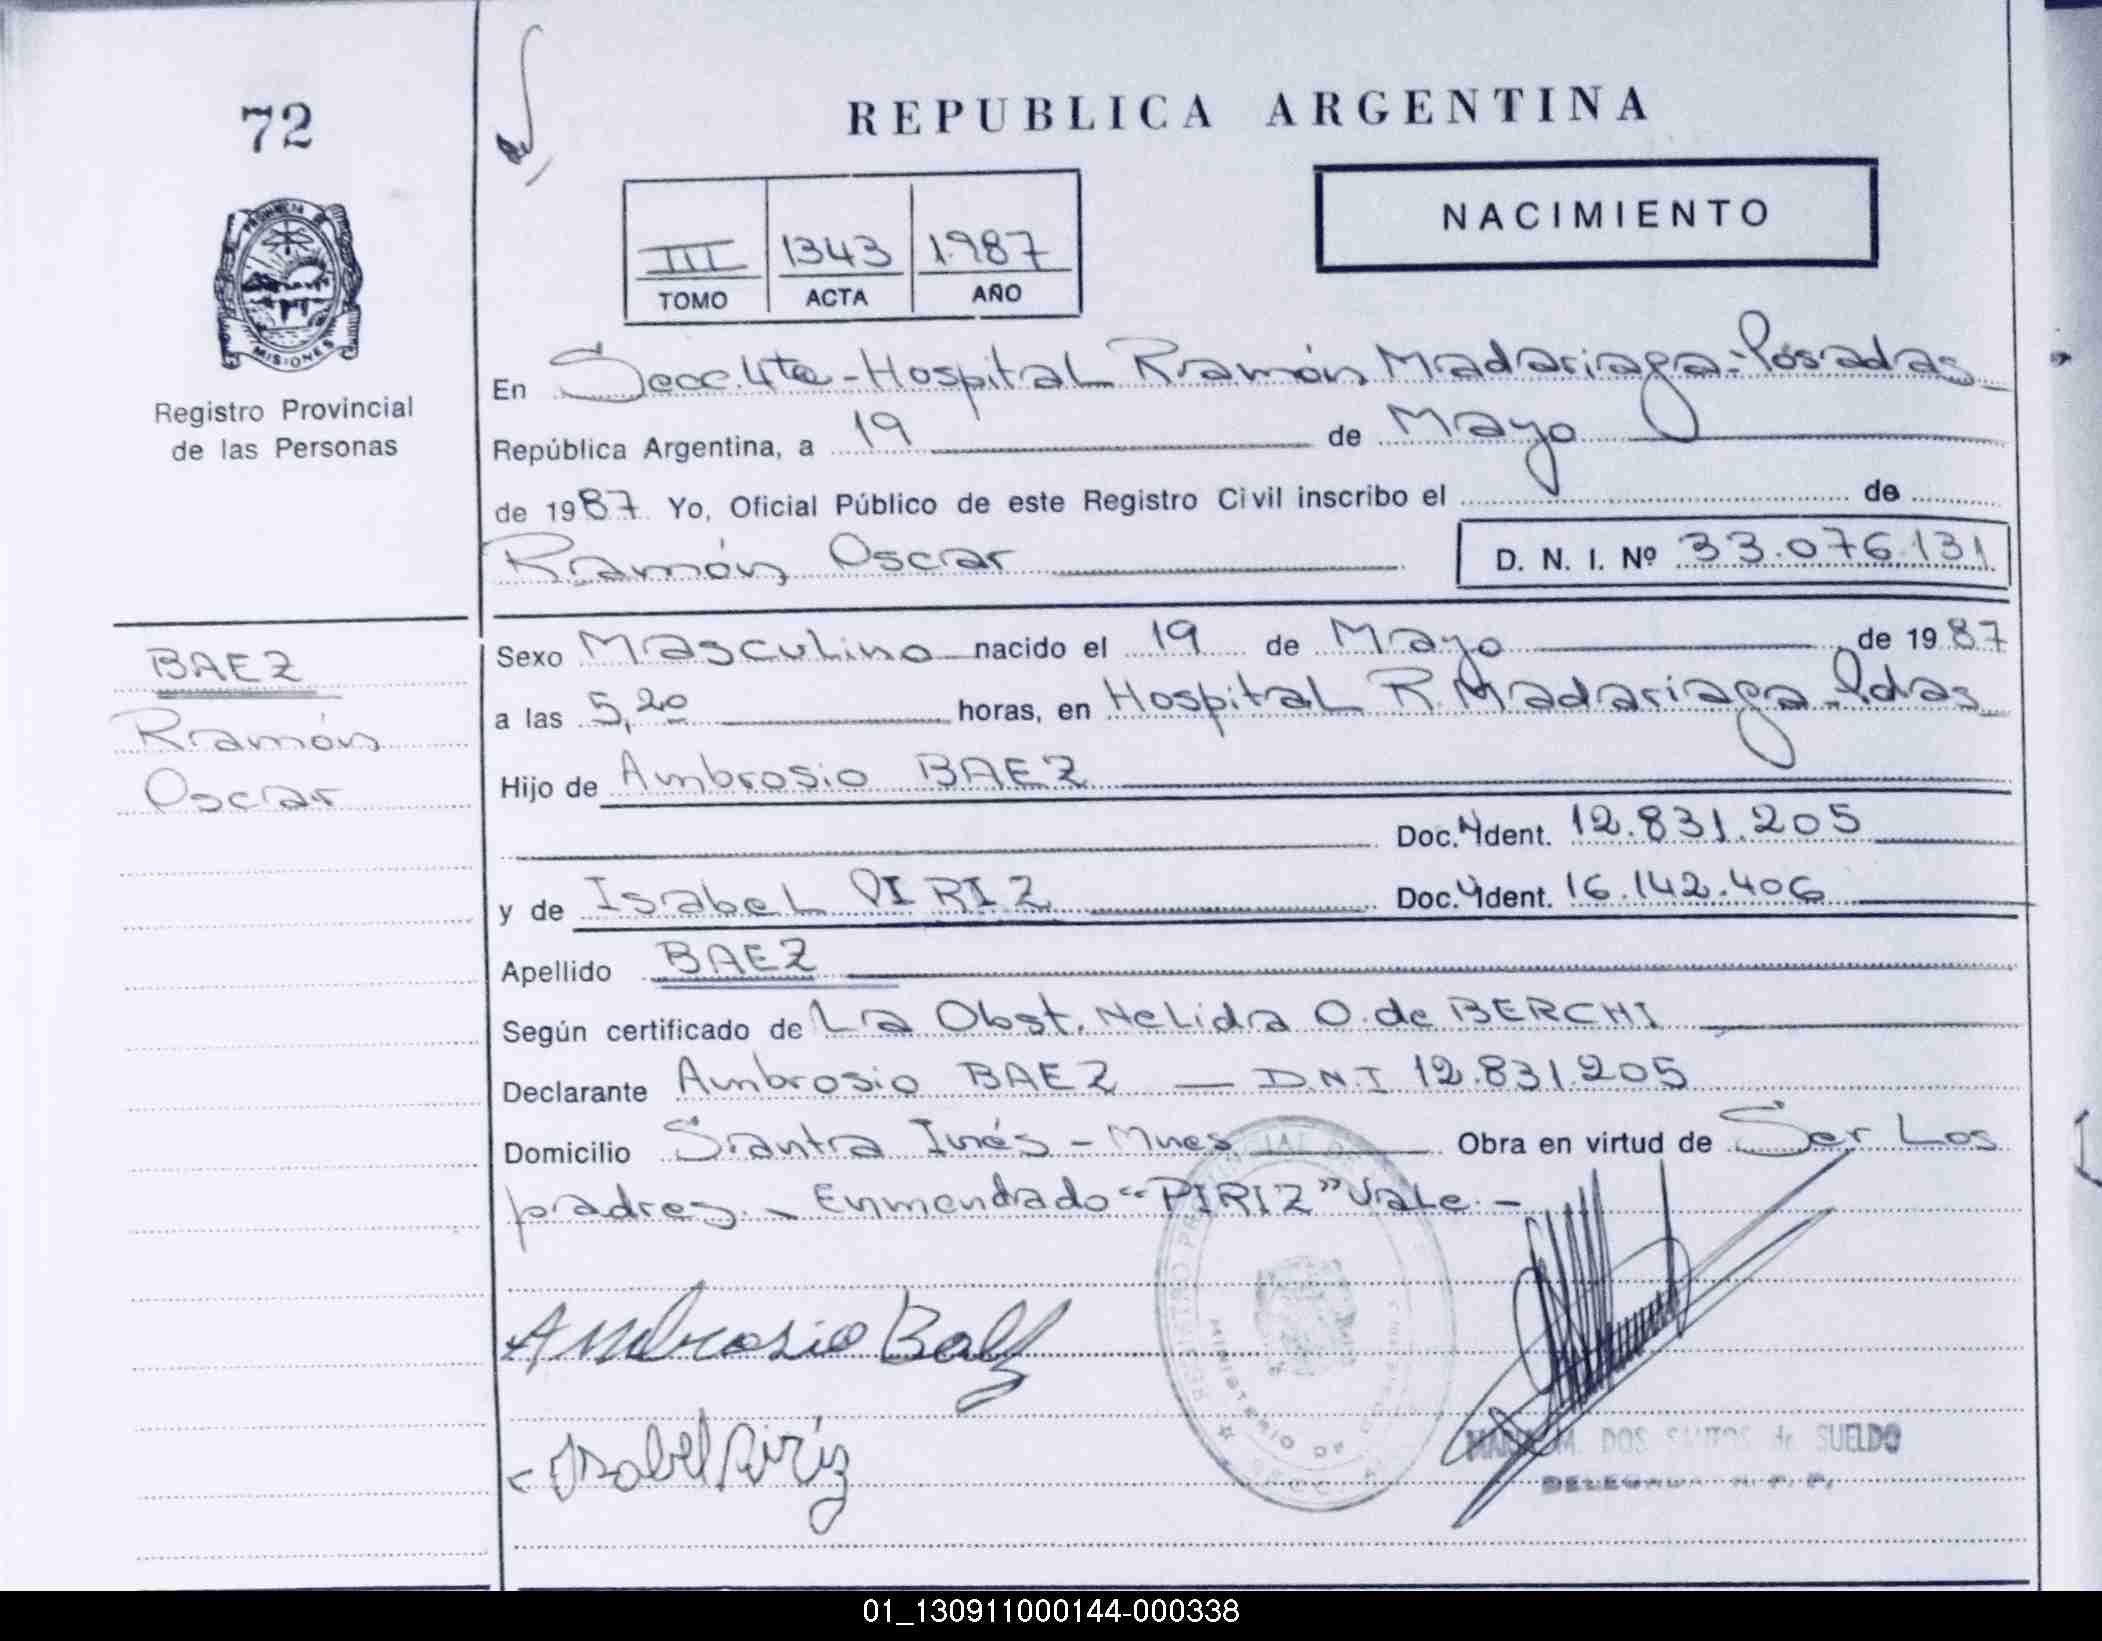 72
REPUBLICA ARGENTINA
NACIMIENTO
III 1343 1.987
TOMO ACTA AÑO
PROVINCIA
MISIONES
Registro Provincial
de las Personas
En Secc. 4ta - Hospital Ramón Madariaga - Posadas
República Argentina, a 19 de Mayo
de 1987 Yo, Oficial Público de este Registro Civil inscribo el de
Ramón Oscar D. N. I. Nº 33.076.131
BAEZ
Ramón
Oscar
Sexo Masculino nacido el 19 de Mayo de 1987
a las 5,20 horas, en Hospital R. Madariaga - Pdas
Hijo de Ambrosio BAEZ
Doc. Ident. 12.831.205
y de Isabel PIRIZ Doc. Ident. 16.142.406
Apellido BAEZ
Según certificado de La Obst. Nelida O. de BERCHI
Declarante Ambrosio BAEZ — D.N.I 12.831.205
Domicilio Santa Inés - Mnes Obra en virtud de Ser Los
padres. - Enmendado "PIRIZ" Vale. -
Ambrosio Baez
Isabel Piriz
REGISTRO
MINISTERIO
MARIA M. DOS SANTOS de SUELDO
DELEGADA R. P. P.
01_130911000144-000338